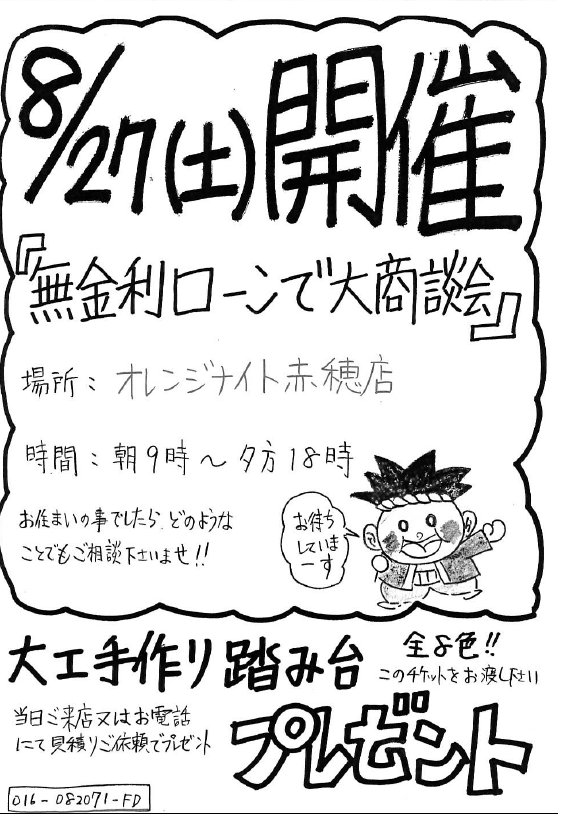 8/27(土)開催
『無金利ローンで大商談会』
場所：オレンジナイト赤穂店
時間：朝9時～夕方18時
お住まいの事でしたら、どのような
ことでもご相談下さいませ!!
お待ち
していま
ーす
大工手作り踏み台
全8色!!
このチケットをお渡し下さい
当日ご来店又はお電話
にて見積りご依頼でプレゼント
プレゼント
016-082071-FD